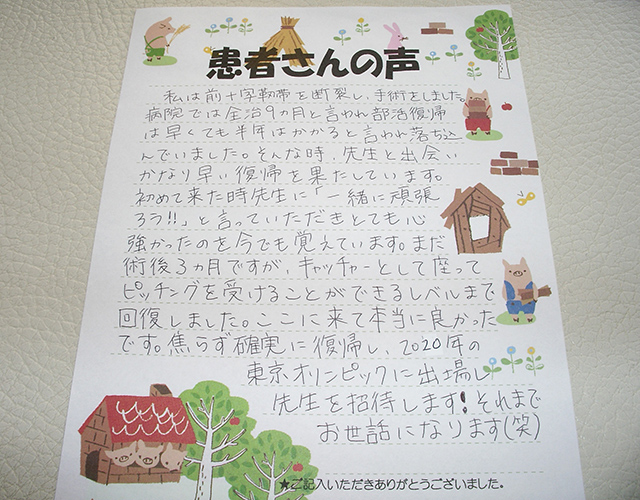 患者さんの声
私は前十字靭帯を断裂し、手術をしました。
病院では全治9カ月と言われ部活復帰
は早くても半年はかかると言われ落ち込
んでいました。そんな時、先生と出会い
かなり早い復帰を果たしています。
初めて来た時先生に「一緒に頑張
ろう!!」と言っていただきとても心
強かったのを今でも覚えています。まだ
術後3カ月ですが、キャッチャーとして座って
ピッチングを受けることができるレベルまで
回復しました。ここに来て本当に良かった
です。焦らず確実に復帰し、2020年の
東京オリンピックに出場し
先生を招待します!それまで
お世話になります(笑)
★ご記入いただきありがとうございました。